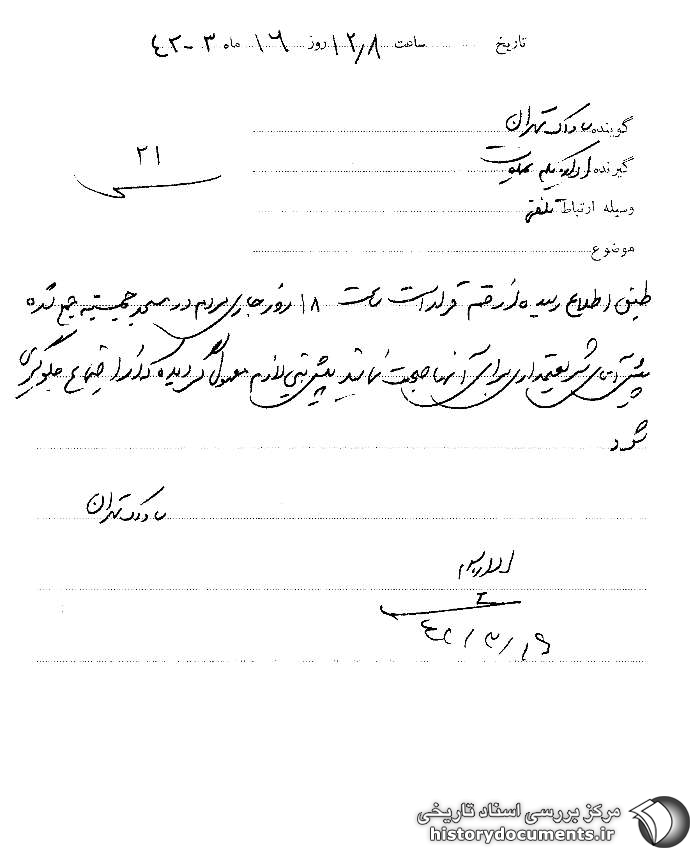 تاریخ ساعت ۱۲٫۸ روز ۱۶ ماه ۳-۴۲
گوینده ساواک تهران
گیرنده
۲۱
وسیله ارتباط تلفن
موضوع
طبق اطلاع رسیده از قم قرار است ساعت ۱۸ روز جاری مردم در مسجد حجتیه جمع شده
آقای شریعتمداری برای آنها صحبت نمایند پیش بینی لازم معمول گردیده که از اجتماع جلوگیری
شود
ساواک تهران
۴۲/۳/۱۶
مرکز بررسی اسناد تاریخی
historydocuments.ir